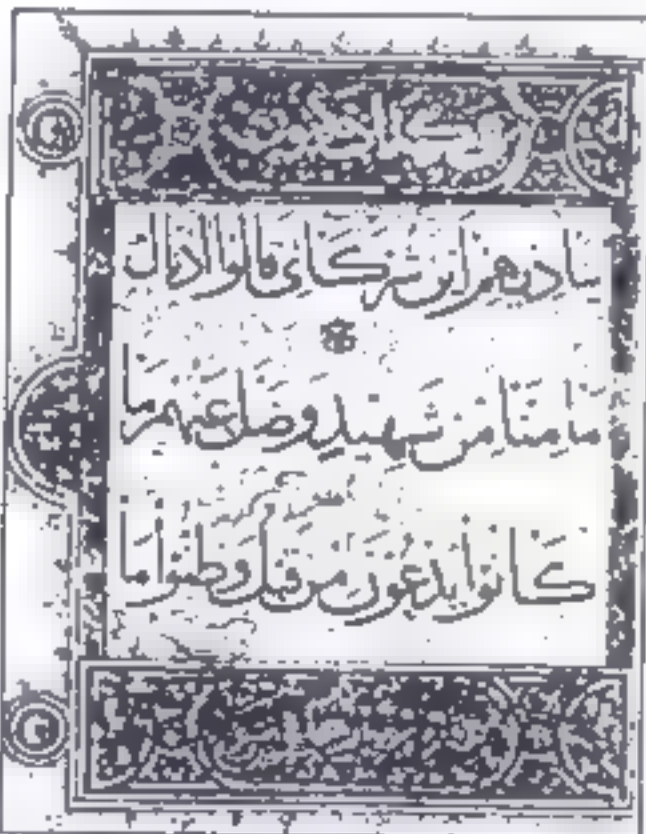 يناديهم اين شركاى قالوا اذناك
ما منا من شهيد وضل عنهم ما
كانوا يدعون من قبل وظنوا ما